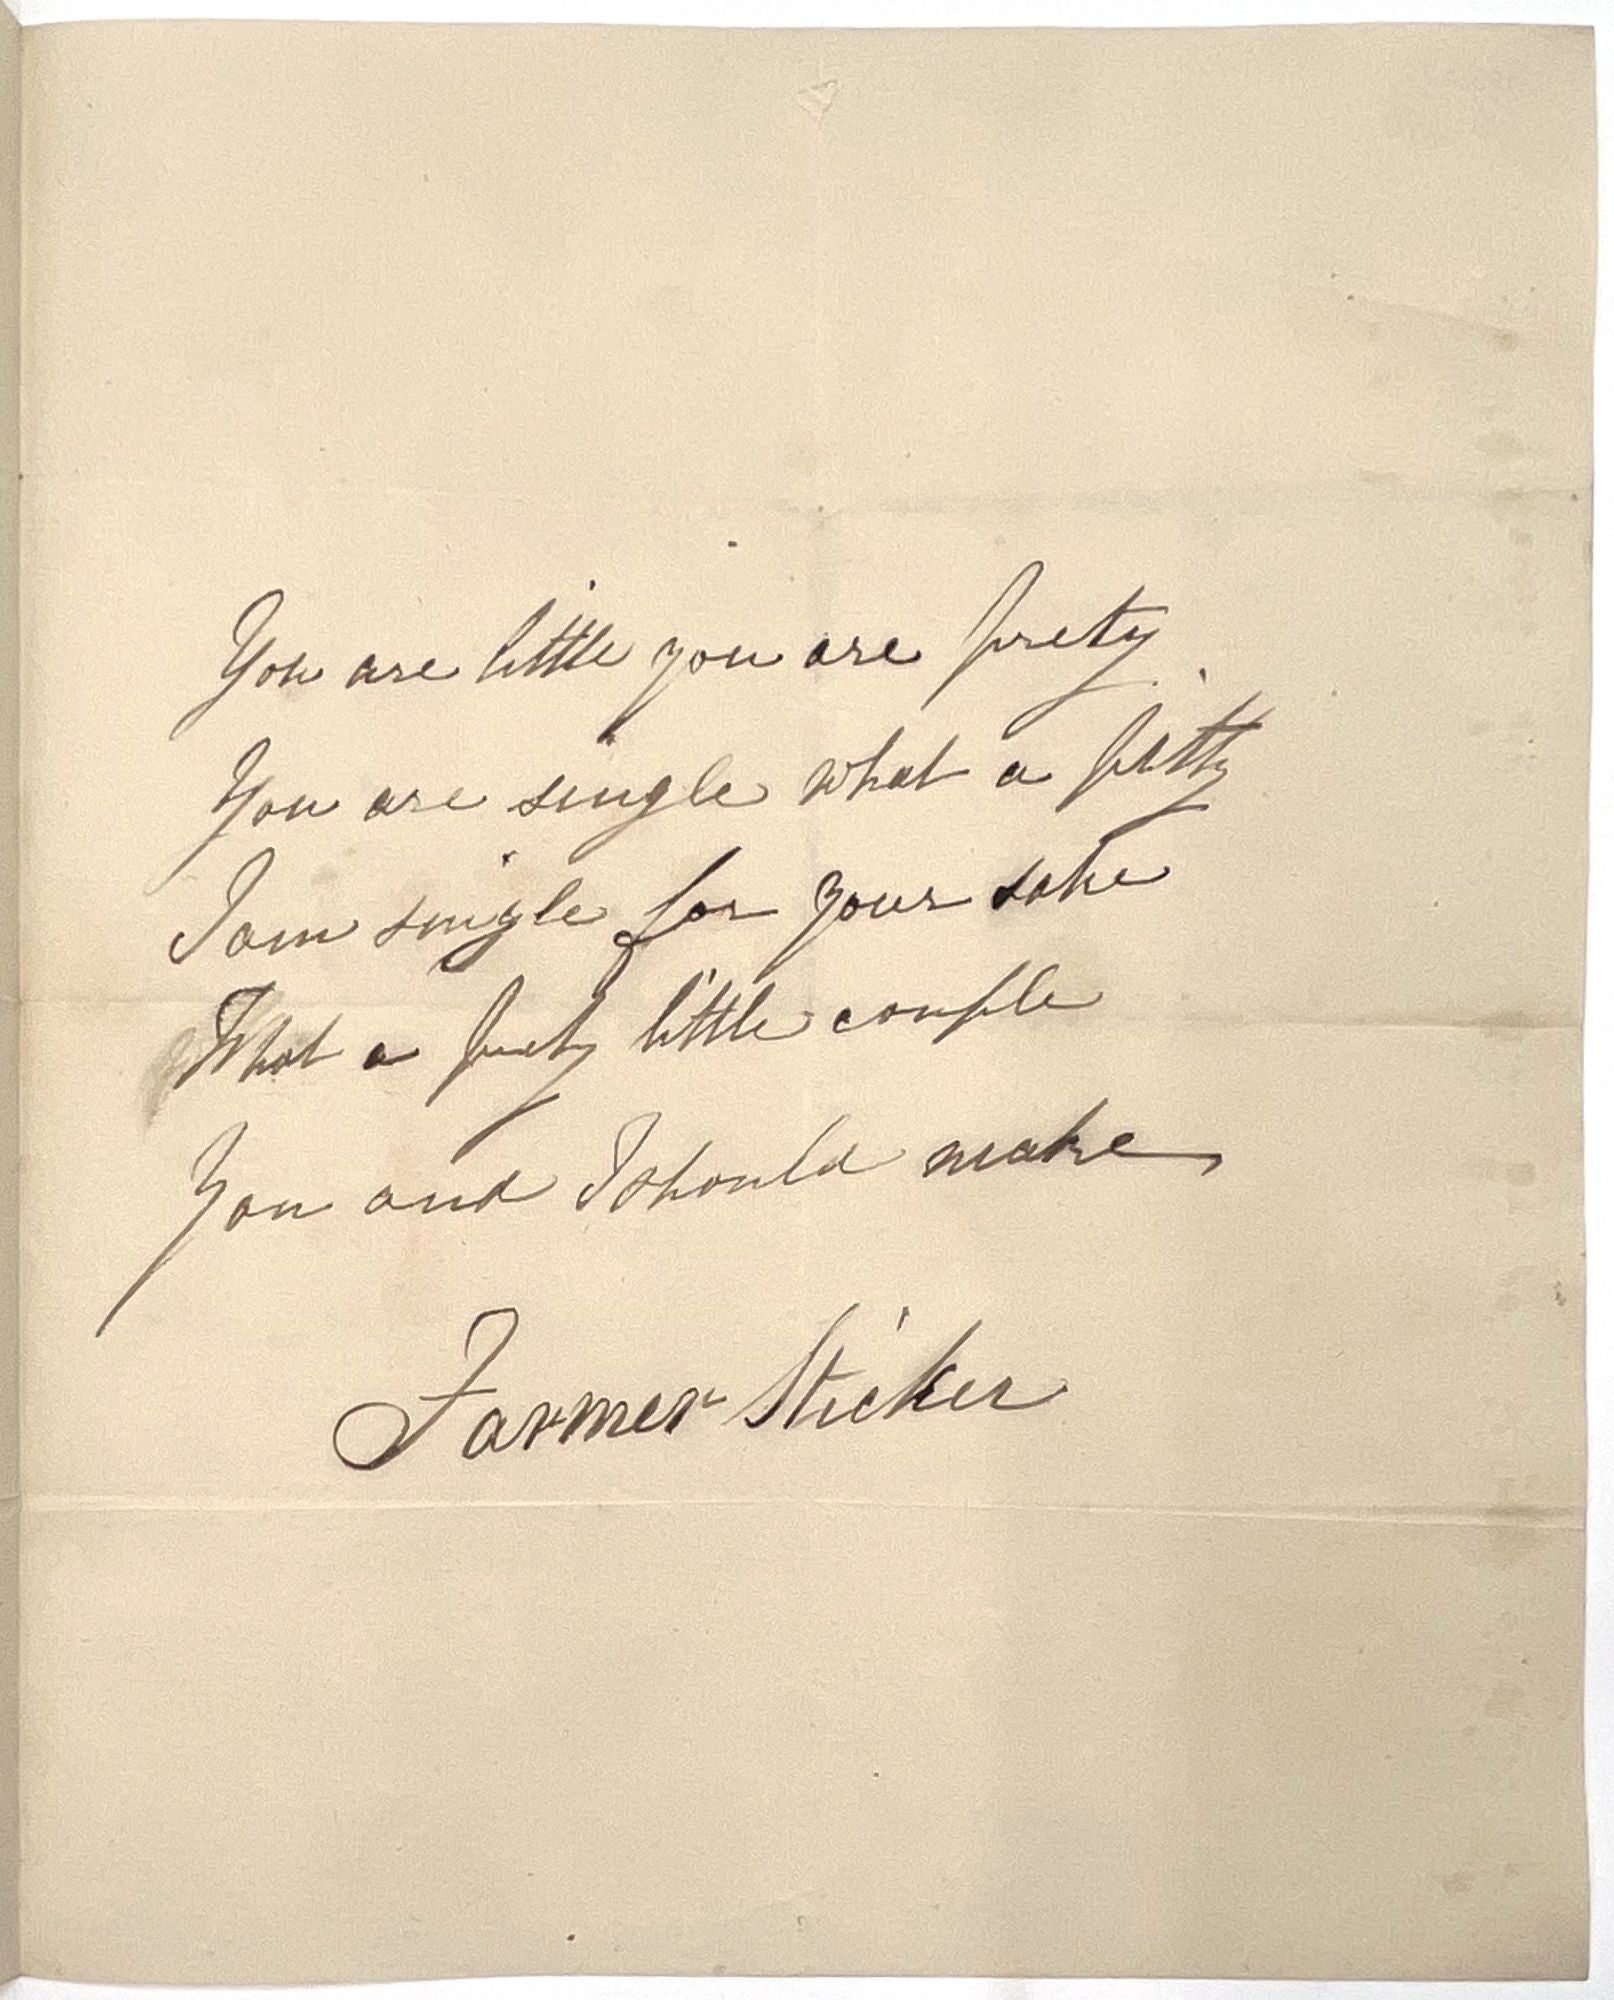 You are little you are prety
You are single what a pitty
I am single for your sake
What a prety little couple
You and I should make
Farmer Sticker